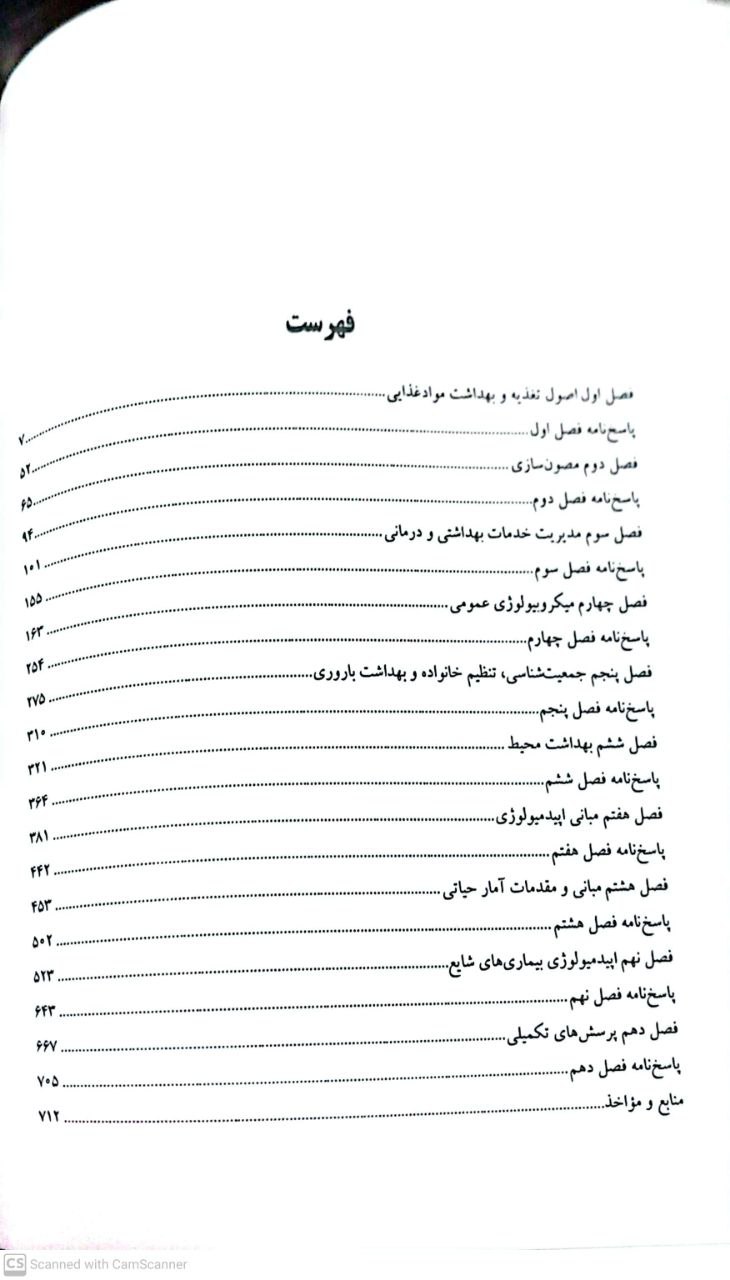 فهرست
فصل اول اصول تغذیه و بهداشت موادغذایی................۷
پاسخ‌نامه فصل اول................۵۲
فصل دوم مصون‌سازی................۶۵
پاسخ‌نامه فصل دوم................۹۴
فصل سوم مدیریت خدمات بهداشتی و درمانی................۱۰۱
پاسخ‌نامه فصل سوم................۱۵۵
فصل چهارم میکروبیولوژی عمومی................۱۶۳
پاسخ‌نامه فصل چهارم................۲۵۴
فصل پنجم جمعیت‌شناسی، تنظیم خانواده و بهداشت باروری................۲۷۵
پاسخ‌نامه فصل پنجم................۳۱۰
فصل ششم بهداشت محیط................۳۲۱
پاسخ‌نامه فصل ششم................۳۶۴
فصل هفتم مبانی اپیدمیولوژی................۳۸۱
پاسخ‌نامه فصل هفتم................۴۴۲
فصل هشتم مبانی و مقدمات آمار حیاتی................۴۵۳
پاسخ‌نامه فصل هشتم................۵۰۲
فصل نهم اپیدمیولوژی بیماری‌های شایع................۵۲۳
پاسخ‌نامه فصل نهم................۶۴۳
فصل دهم پرسش‌های تکمیلی................۶۶۷
پاسخ‌نامه فصل دهم................۷۰۵
منابع و مؤاخذ................۷۱۲
CS Scanned with CamScanner